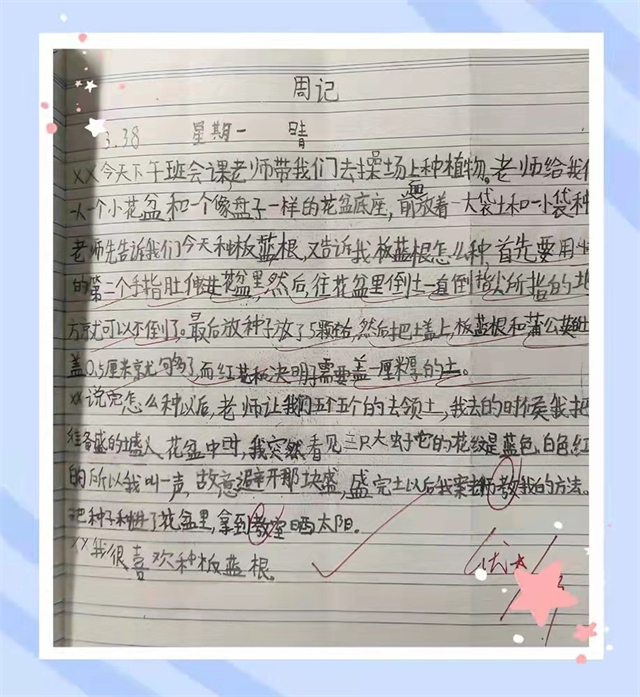 周记
3.38 星期一 晴
××今天下午班会课,老师带我们去操场上种植物。老师给我们
一人一个小花盆和一个像盘子一样的花盆底座,前面放着一大袋土和一小袋种
老师先告诉我们今天种板蓝根,又告诉我板蓝根怎么种,首先要用
的第二个手指肚伸进花盆里,然后,往花盆里倒土一直倒指尖所指的地
方就可以不倒了。最后放种子放了5颗,然后把土盖上板蓝根和蒲公英
盖0.5厘米就够了,而红花和决明子需要盖一厘米厚的土。
××说完怎么种以后,老师让我们五个五个的去领土,我去的时候我把
准备盛的土盛入花盆中时,我突然看见三只大虫子它的花纹是蓝色,白色,红
的所以我叫一声,故意避开那块盛,盛完土以后我按老师教我的方法。
把种子种进了花盆里,拿到教室晒太阳。
××我很喜欢种板蓝根。
优